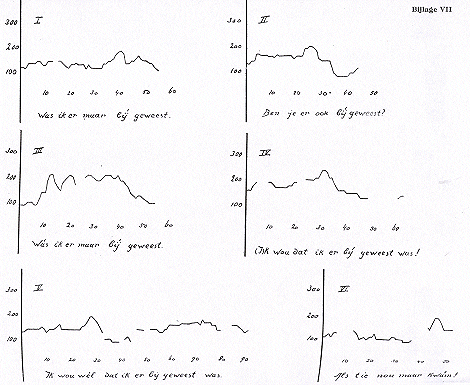 Bijlage VII
I
300
200
100
10 20 30 40 50 60
Was ik er maar bij geweest.
II
300
200
100
10 20 30 40 50
Ben je er ook bij geweest?
III
300
200
100
10 20 30 40 50 60
Was ik er maar bij geweest.
IV
300
200
100
10 20 30 40 50 60
Ik wou dat ik er bij geweest was!
V
300
200
100
10 20 30 40 50 60 70 80 90
Ik wou wèl dat ik er bij geweest was.
VI
300
200
100
10 20 30 40 50
Als tie nou maar kwam!